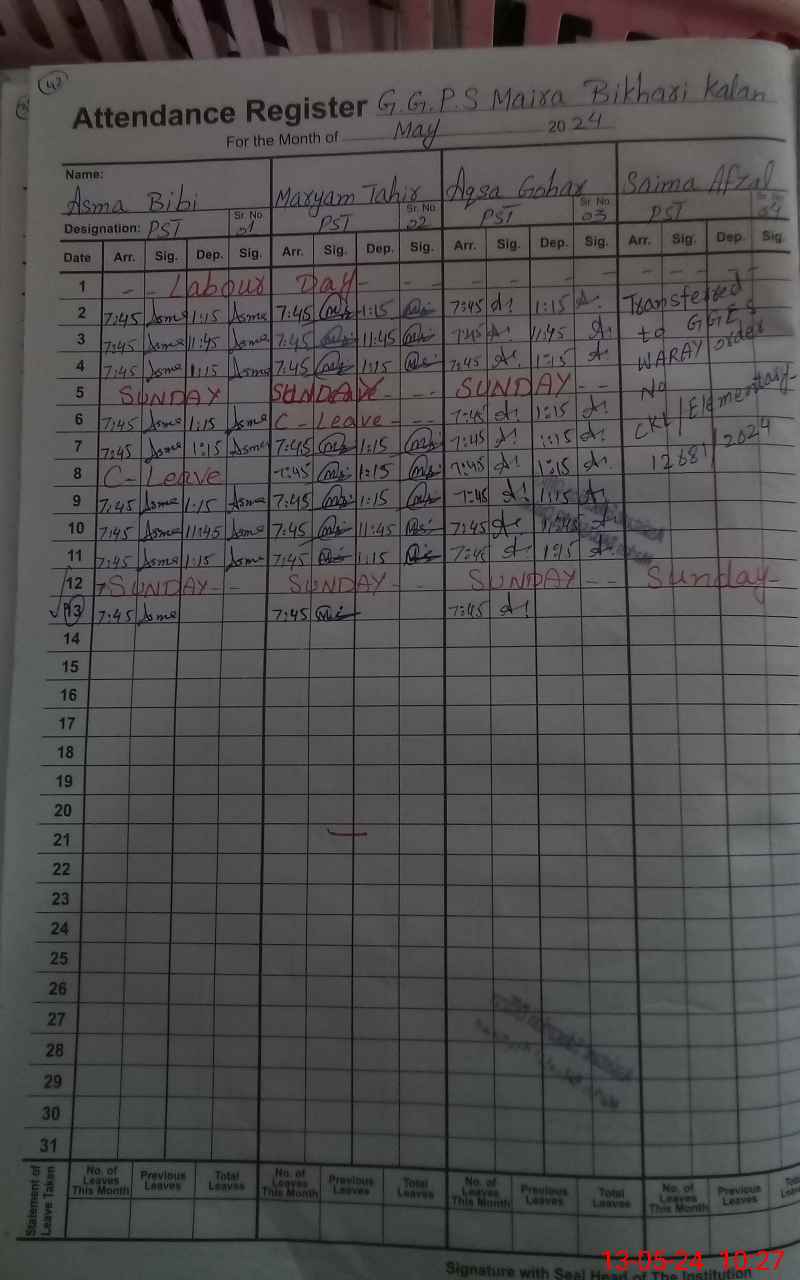 42
Attendance Register G.G.P.S Maira Bikhari Kalan
For the Month of May 2024
Name: Asma Bibi Maryam Tahir Aqsa Gohar Saima Afzal
Designation: PST Sr. No. 01 PST Sr. No. 02 PST Sr. No. 03 PST 04
Date Arr. Sig. Dep. Sig. Arr. Sig. Dep. Sig. Arr. Sig. Dep. Sig. Arr. Sig. Dep. Sig.
1 - - Labour Day - - - - - - - - -
2 7:45 Asma 1:15 Asma 7:45 1:15 7:45 1:15 Transfered
3 7:45 Asma 11:45 Asma 7:45 11:45 7:45 11:45 to GGES
4 7:45 Asma 1:15 Asma 7:45 1:15 7:45 1:15 WARAY order
5 SUNDAY SUNDAY - - SUNDAY - - No
6 7:45 Asma 1:15 Asma C - Leave - - - 7:45 1:15 CKL/Elementary-
7 7:45 Asma 1:15 Asma 7:45 1:15 7:45 1:15 12681/2024
8 C- Leave 7:45 1:15 7:45 1:15
9 7:45 Asma 1:15 Asma 7:45 1:15 7:45 1:15
10 7:45 Asma 11:45 Asma 7:45 11:45 7:45 11:45
11 7:45 Asma 1:15 Asma 7:45 1:15 7:45 1:15
12 SUNDAY - - SUNDAY - - SUNDAY - - Sunday-
13 7:45 Asma 7:45 7:45
14
15
16
17
18
19
20
21
22
23
24
25
26
27
28
29
30
31
Statement of Leave Taken No. of Leaves This Month Previous Leaves Total Leaves No. of Leaves This Month Previous Leaves Total Leaves No. of Leaves This Month Previous Leaves Total Leaves No. of Leaves This Month Previous Leaves
Signature with Seal Head of The Institution
13-05-24 10:27